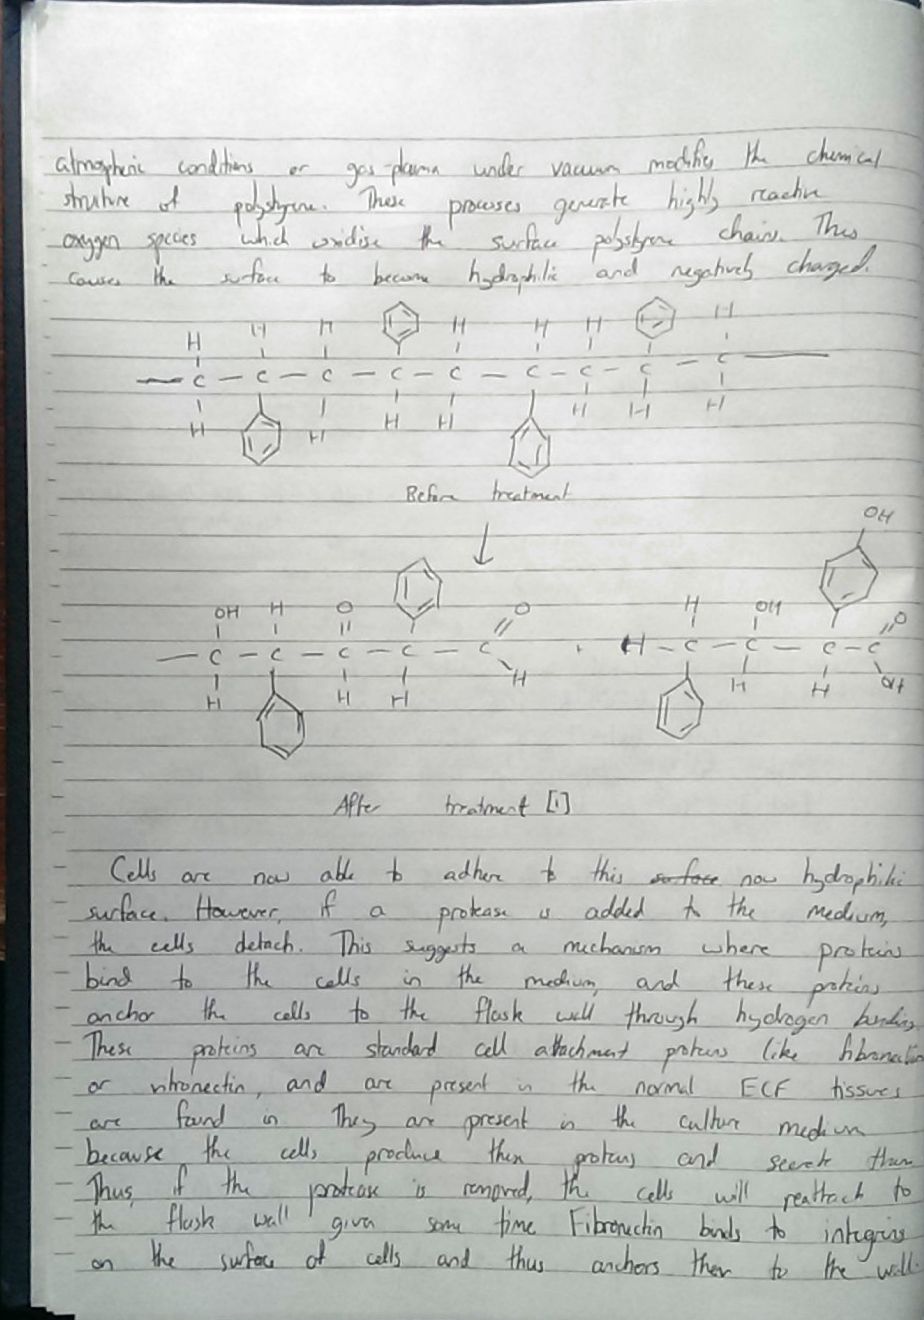 atmospheric conditions or gas-plasma under vacuum modifies the chemical
struture of polystyrene. These processes generate highly reactive
oxygen species which oxidise the surface polystyrene chains. This
causes the surface to become hydrophilic and negatively charged.
H H H H H H H
— C — C — C — C — C — C — C — C — C —
H H H H H H H
Before treatment
OH
OH H O O H OH O
— C — C — C — C — C H — C — C — C — C
H H H H H H OH
After treatment [1]
Cells are now able to adhere to this surface now hydrophilic
surface. However, if a protease is added to the medium,
the cells detach. This suggests a mechanism where proteins
bind to the cells in the medium, and these proteins
anchor the cells to the flask wall through hydrogen bonding.
These proteins are standard cell attachment proteins like fibronectin
or vitronectin, and are present in the normal ECF tissues
are found in. They are present in the culture medium
because the cells produce these proteins and secrete them.
Thus, if the protease is removed, the cells will reattach to
the flask wall given some time. Fibronectin binds to integrins
on the surface of cells and thus anchors them to the wall.